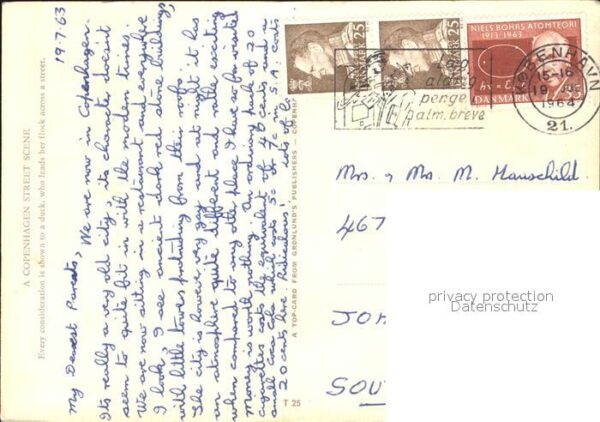 19.7.63
My Dearest Parents,
We are now in Copenhagen.
Its really a very old city, its character doesnt
seem to quite fit in with the modern times.
We are now sitting in a restaurant and everywhere
I look, I see ancient dark red stone buildings,
with little towers protruding from their roofs.
The city is however very gay and at night it has
an atmosphere quite different and exciting
when compared to any other place I have so far visited
Money is worth nothing. An ordinary pack of 20
cigarettes costs the equivalent of 46 cents and a
small Coca Cola which costs 5c or 7c in S.A. costs
20 cents here. Ridiculous!
lots of love
A COPENHAGEN STREET SCENE
Every consideration is shown to a duck, who leads her flock across a street.
A TOP-CARD FROM GRØNLUND'S PUBLISHERS – COPENH
T 25
DANMARK 25
DANMARK 25
NIELS BOHRS ATOMTEORI
1913-1963
DANMARK
aldrig
penge
i alm. breve
KØBENHAVN
15-16
19
1964
21.
Mrs. & Mrs. M. Hanschild.
467
JOH
SOU
privacy protection
Datenschutz